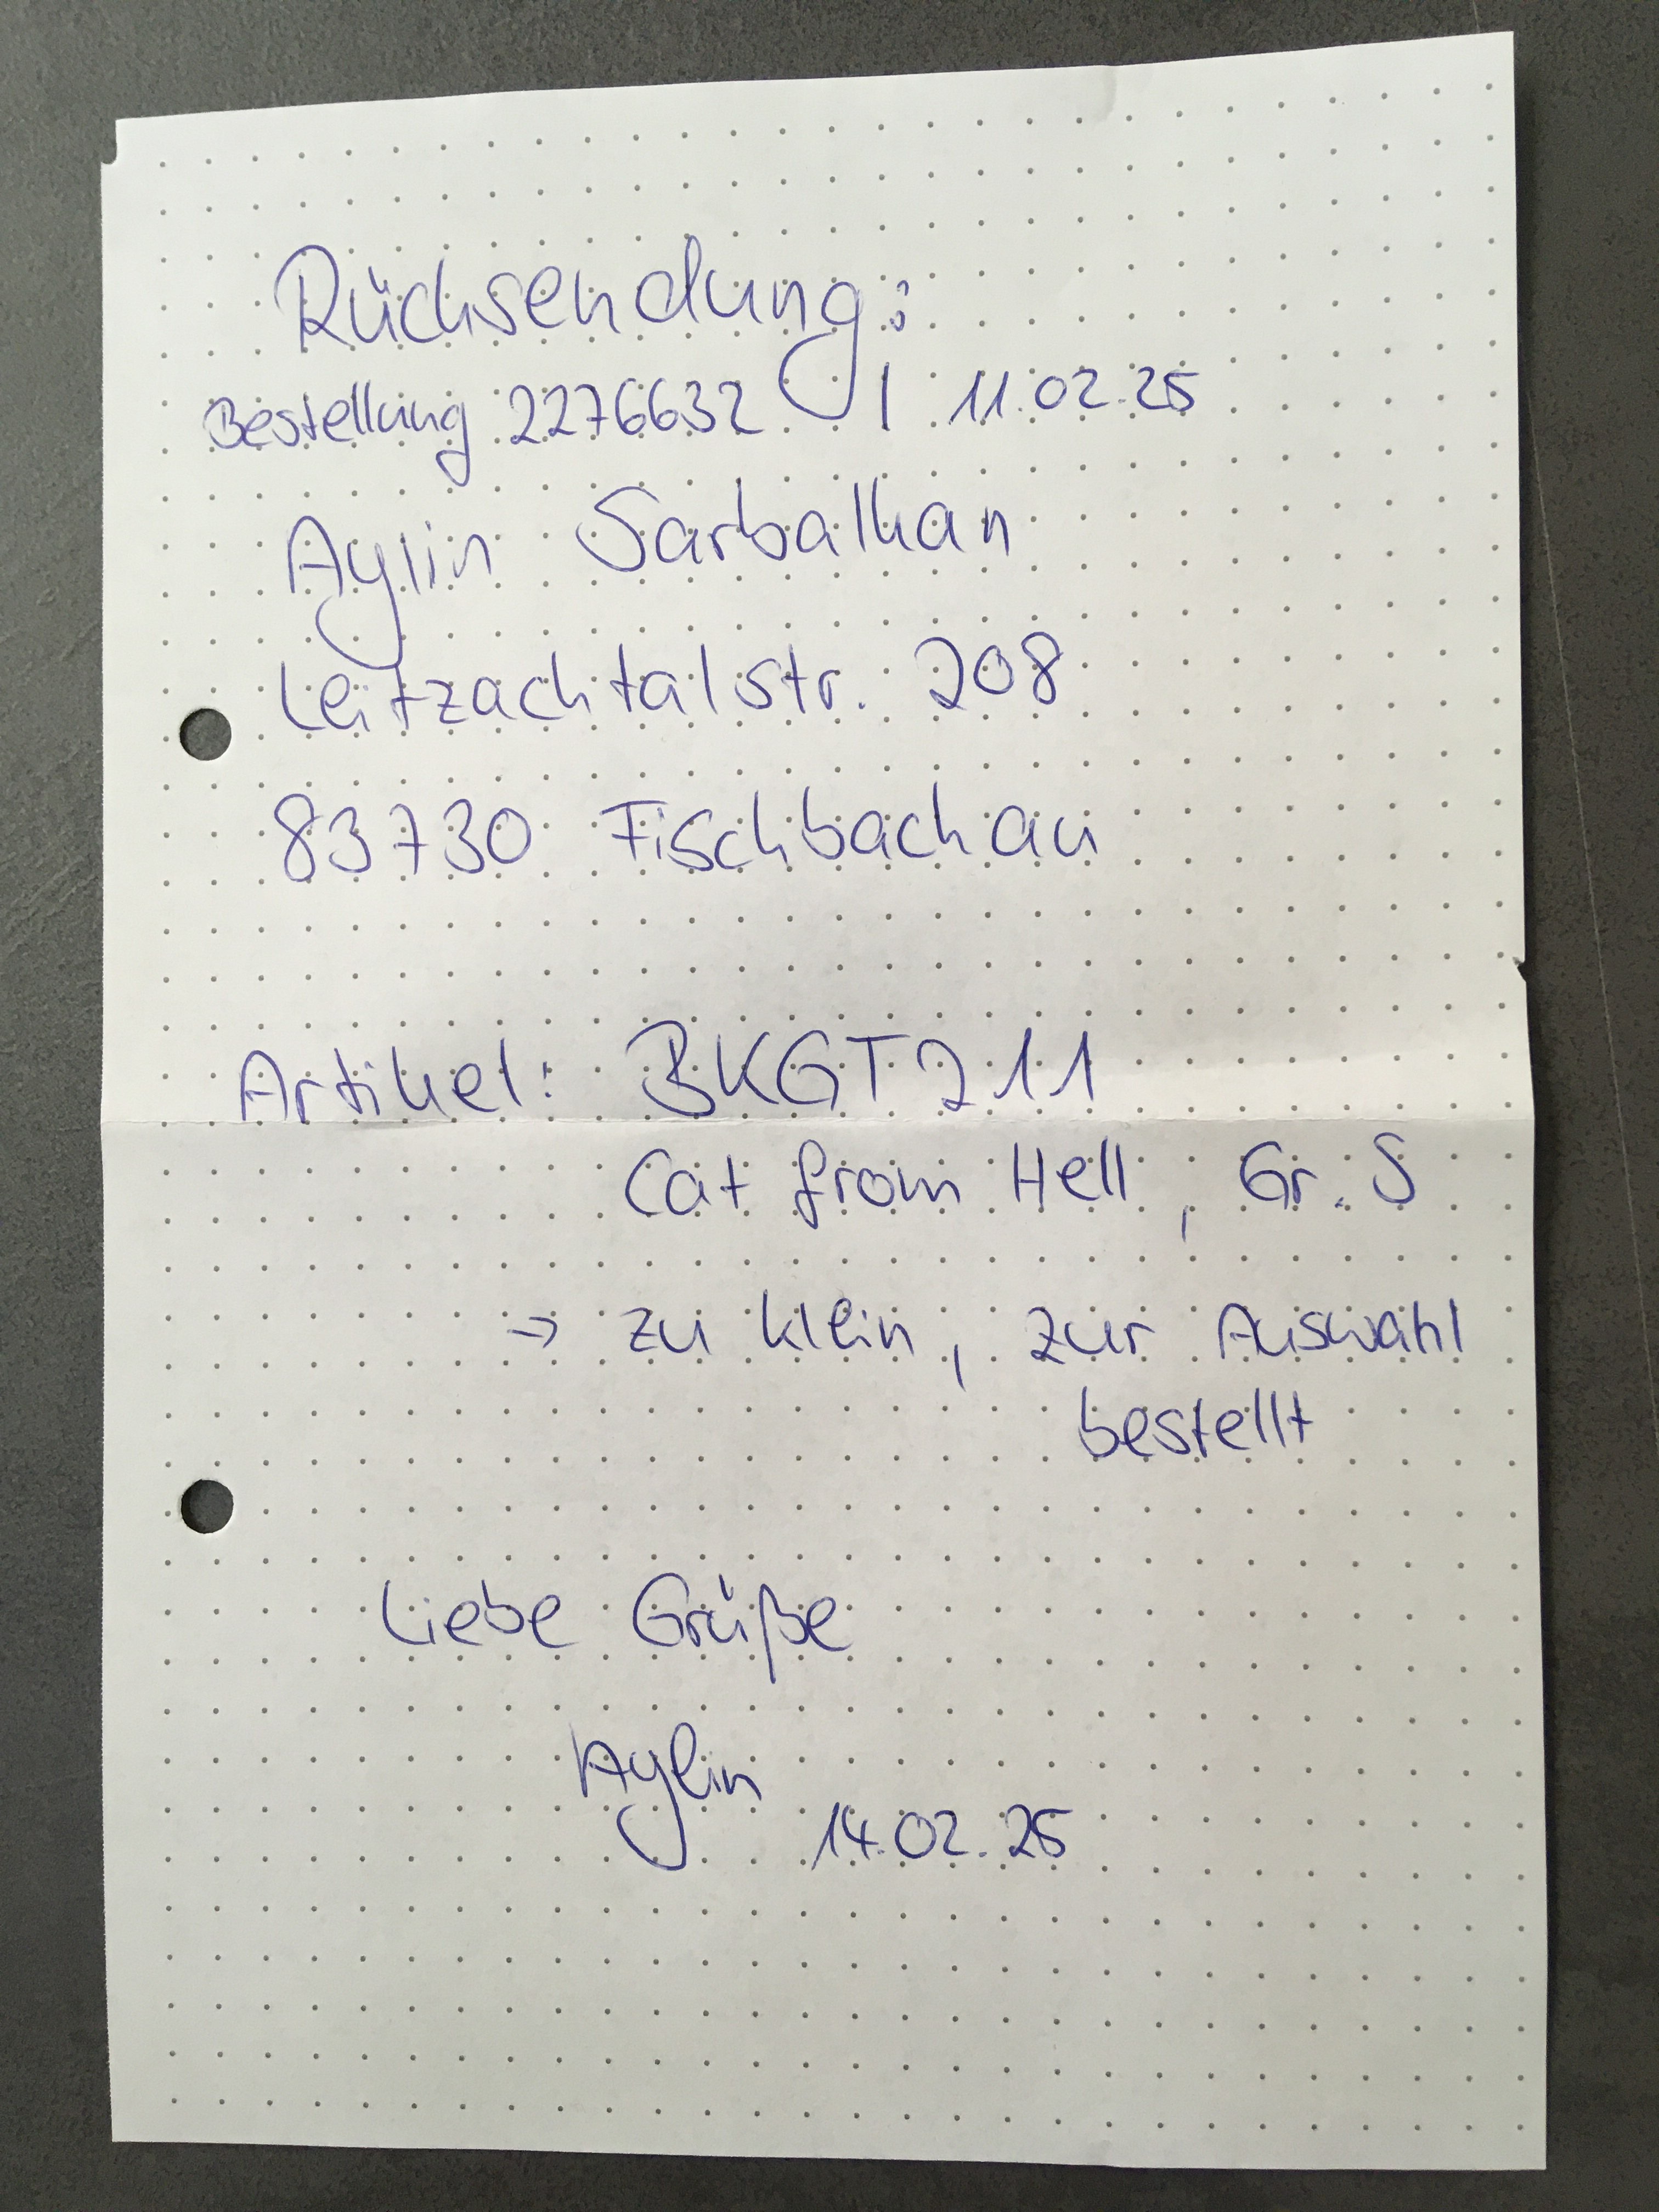 Rücksendung:
Bestellung 2276632 | 11.02.25
Aylin Sarbalkan
Leitzachtalstr. 208
83730 Fischbachau
Artikel: BKGT211
Cat from Hell, Gr. S
→ zu klein, zur Auswahl
bestellt
Liebe Grüße
Aylin
14.02.25